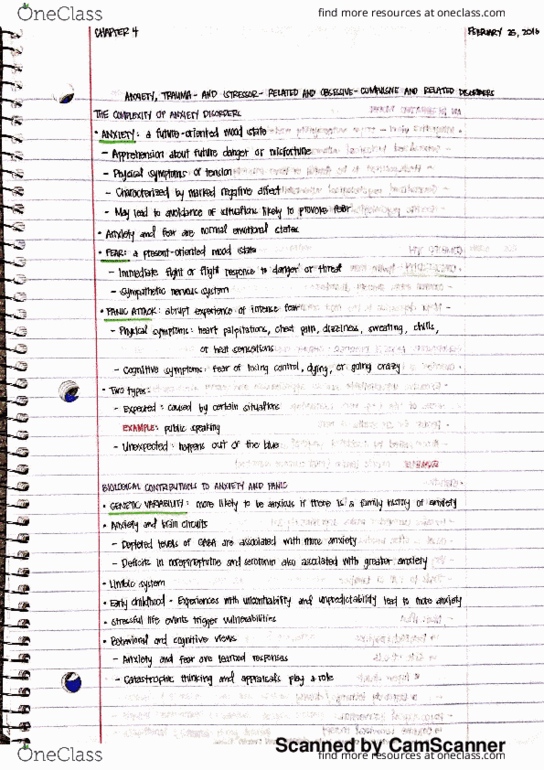 OneClass
find more resources at oneclass.com
CHAPTER 4
FEBRUARY 25, 2016
ANXIETY, TRAUMA- AND STRESSOR- RELATED AND OBSESSIVE- COMPULSIVE AND RELATED DISORDERS
THE COMPLEXITY OF ANXIETY DISORDERS
• ANXIETY: a future-oriented mood state
- Apprehension about future danger or misfortune
- Physical symptoms of tension
- Characterized by marked negative affect
- May lead to avoidance of situations likely to provoke fear
• Anxiety and fear are normal emotional states
• FEAR: a present-oriented mood state
- Immediate fight or flight response to danger or threat
- Sympathetic nervous system
• PANIC ATTACK: abrupt experience of intense fear
- Physical symptoms: heart palpitations, chest pain, dizziness, sweating, chills,
or heat sensations
- Cognitive symptoms: fear of losing control, dying, or going crazy
• Two types:
- Expected: caused by certain situations
EXAMPLE: public speaking
- Unexpected: happens out of the blue
BIOLOGICAL CONTRIBUTIONS TO ANXIETY AND PANIC
• GENETIC VARIABILITY: more likely to be anxious if there is a family history of anxiety
• Anxiety and brain circuits
- Depleted levels of GABA are associated with more anxiety
- Deficits in norepinephrine and serotonin also associated with greater anxiety
• Limbic system
• Early childhood - Experiences with uncontrollability and unpredictability lead to more anxiety
• Stressful life events trigger vulnerabilities
• Behavioral and cognitive views
- Anxiety and fear are learned responses
- Catastrophic thinking and appraisals play a role
Scanned by CamScanner
OneClass
find more resources at oneclass.com